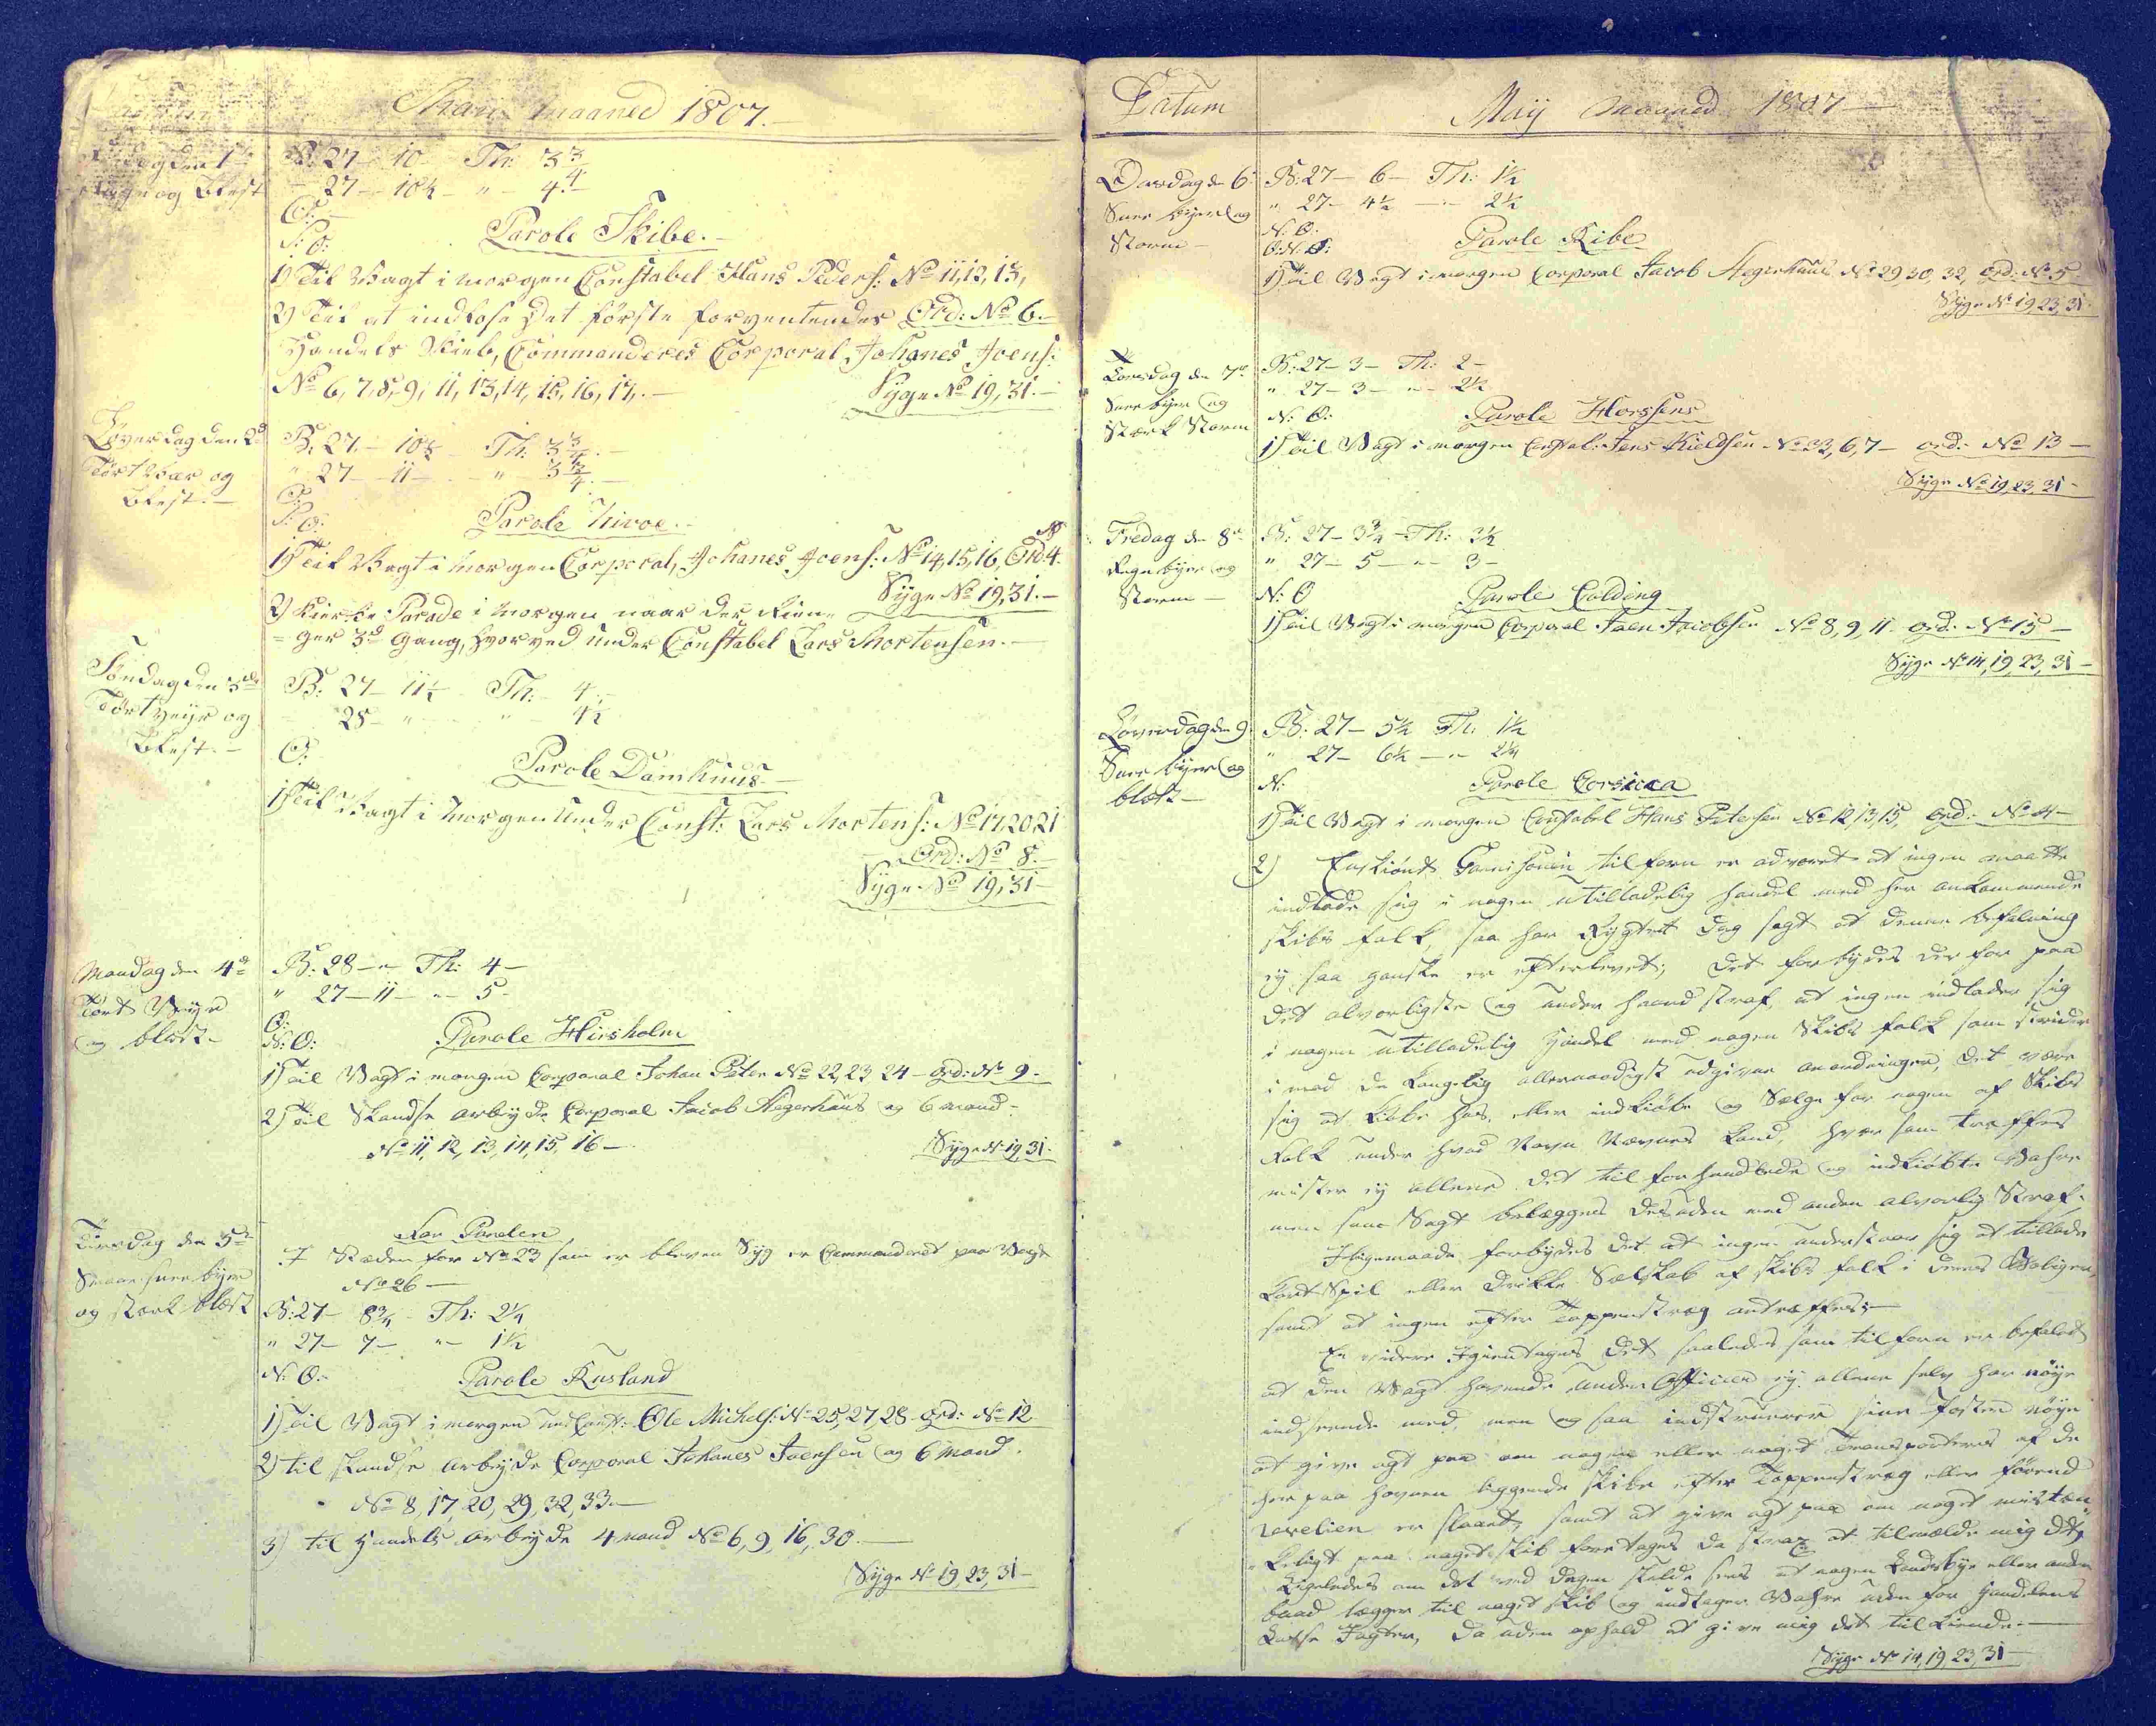 Maij maaned 1807.
Fredag den 1
Regn og Blest
B: 27 - 10 - Th: 3 3/4
- 27 - 10 1/2 - " - 4 -
O:
S: O:
Parole Skibe. -
1) Til Wagt i morgen Constabel Hans Peders: No 11, 12, 13,
2) Til at indlose Det förste forventendes Ord: No 6. -
Handels Skieb, Commanderes Corporal, Johanes Joens:
No 6, 7, 8, 9, 11, 13, 14, 15, 16, 17, . -
Syge No 19, 31. -
Löverdag den 2d
Tört Wær og
Blest. -
B: 27. - 10 1/2 - Th: 3 3/4. -
" 27 - 11 - - " 3 3/4. -
O:
S: O:
Parole Nivoe. -
1) Til Wagt i Morgen Corporal, Johanes Joens: No 14, 15, 16, Ord 4.
Syge No 19, 31. -
2) Kierke Parade i Morgen naar der Rin-
= ger 3d Gang, Hvorved Under Constabel Lars Mortensen. -
Söndag den 3de
Tört Veijr og
Blest. -
B: 27 - 11 1/2 - Th: - 4 -
- 28 - " - " - 4 1/2
O:
Parole Damhuus. -
1) Til Wagt i Morgen Under Const: Lars Mortens: No 17, 20, 21
Ord: No 8. -
Syge No 19, 31 -
Mandag den 4de
Tört Veyr
og blæst -
B: 28 - " - Th: 4 -
" 27 - 11 - " - 5 -
O:
N: O:
Parole Hirsholm
1) Til Wagt i morgen Corporal Johan Peter No 22, 23, 24 - Ord: No 9. -
2) Til Skandse arbeyde Corporal Jacob Hegerhaus og 6 mand -
No 11, 12, 13, 14, 15, 16 -
Syge No 19, 31 -
Tirsdag den 5te
Smaae snee byer
og stærk blæst
For Parolen
I Stæden for No 23 som er bleven Syg er Commanderet paa Wagt
No 26 -
B: 27 - 8 3/4 - Th: 2 1/4
" 27 - 7 - " - 1 1/2
N: O: -
Parole Rusland
1) Til Wagt i morgen Und Const: Ole Michels: No 25, 27, 28 - Ord: No 12
2) til skandse arbeyde Corporal Johanes Joensen og 6 Mand.
No 8, 17, 20, 29, 32, 33. -
3) til Handels arbeyde 4 mand No 6, 9, 16, 30. -
Syge No 19, 23, 31 -
Datum
Maij Maaned 1807 -
Onsdag den 6
Snee byer og
Storm -
B: 27 - 6 - Th: 1 1/2
" 27 - 4 1/2 - " - 2 1/2
N: O:
O: N: O:
Parole Ribe
1) Til Wagt i morgen Corporal Jacob Hegerhaus No 29, 30, 32, Ord: No 5
Syge No 19, 23, 31 -
Torsdag den 7de
Snee byer og
Stærk Storm
B: 27 - 3 - Th: 2 -
" 27 - 3 - " - 2 1/2
N: O:
Parole Horssens
1) Til Wagt i morgen Constab: Jens Kieldsen No 33, 6, 7 - Ord: No 13 -
Syge No 19, 23, 31 -
Fredag den 8de
Regn byer og
Storm -
B: 27 - 3 3/4 - Th: 3 1/2
" 27 - 5 - " - 3 -
N: O
Parole Colding
1) Til Wagt i morgen Corporal Joen Jacobsen No 8, 9, 11 - Ord: No 15 -
Syge No 14, 19, 23, 31 -
Löverdag den 9
Snee byer og
blæst -
B: 27 - 5 1/2 Th: 1 1/2
" 27 - 6 1/2 - " - 2 1/4
N:
Parole Corsicca
1) Til Wagt i morgen Constabel Hans Petersen No 12, 13, 15, Ord: No 4 -
2) Enskiönt Garnisonen tilforn er advaret at ingen maatte
indlade sig i nogen utilladelig handel med her ankommende
skibs folk, saa har Rygtet dog sagt at denne befalning
ey saa ganske er efterlevet; Det forbydes derfor paa
det alvorligste og under haard straf, at ingen indlader sig
i nogen utilladelig Handel med nogen Skibs folk som strider
imod de kongelig allernaadigst udgivne anordninger, det være
sig at kiöbe hos, eller indkiöbe og Sælge for nogen af Skibs
folk under hvad Navn Nævnes kand, hvor som træffes
mister ey allene det til forhandlede og indkiöbte Wahre
men som Sagt belægges desuden med anden alvorlig Straf.
Iligemaade forbydes det at ingen understaar sig at tillade
kort Spil eller Drikke Selskab af skibs folk i deres Boliger,
samt at ingen efter Tappenstræg antreffes: -
En videre Igientages det saaledes som tilforn er befalet
at den Wagt havende Under Officier ey allene selv har nöye
indseende med, men og saa instruerer sine Poster nöye
at give agt paa om nogen eller noget Transporteres af de
her paa havnen liggende skibe efter Tappenstræg eller förend
revelien er slaaet, samt at give agt paa om noget mistæn-
keligt paa noget skib foretages da strax at tilmælde mig det,
Ligeledes om det ved dagen skulde sees at nogen Landsbye eller anden
baad lægger til noget skib og indtager Wahre uden for Handelens
Losse Jagter, da uden ophold at give mig det tilkiende. -
Syge No 14, 19, 23, 31 -